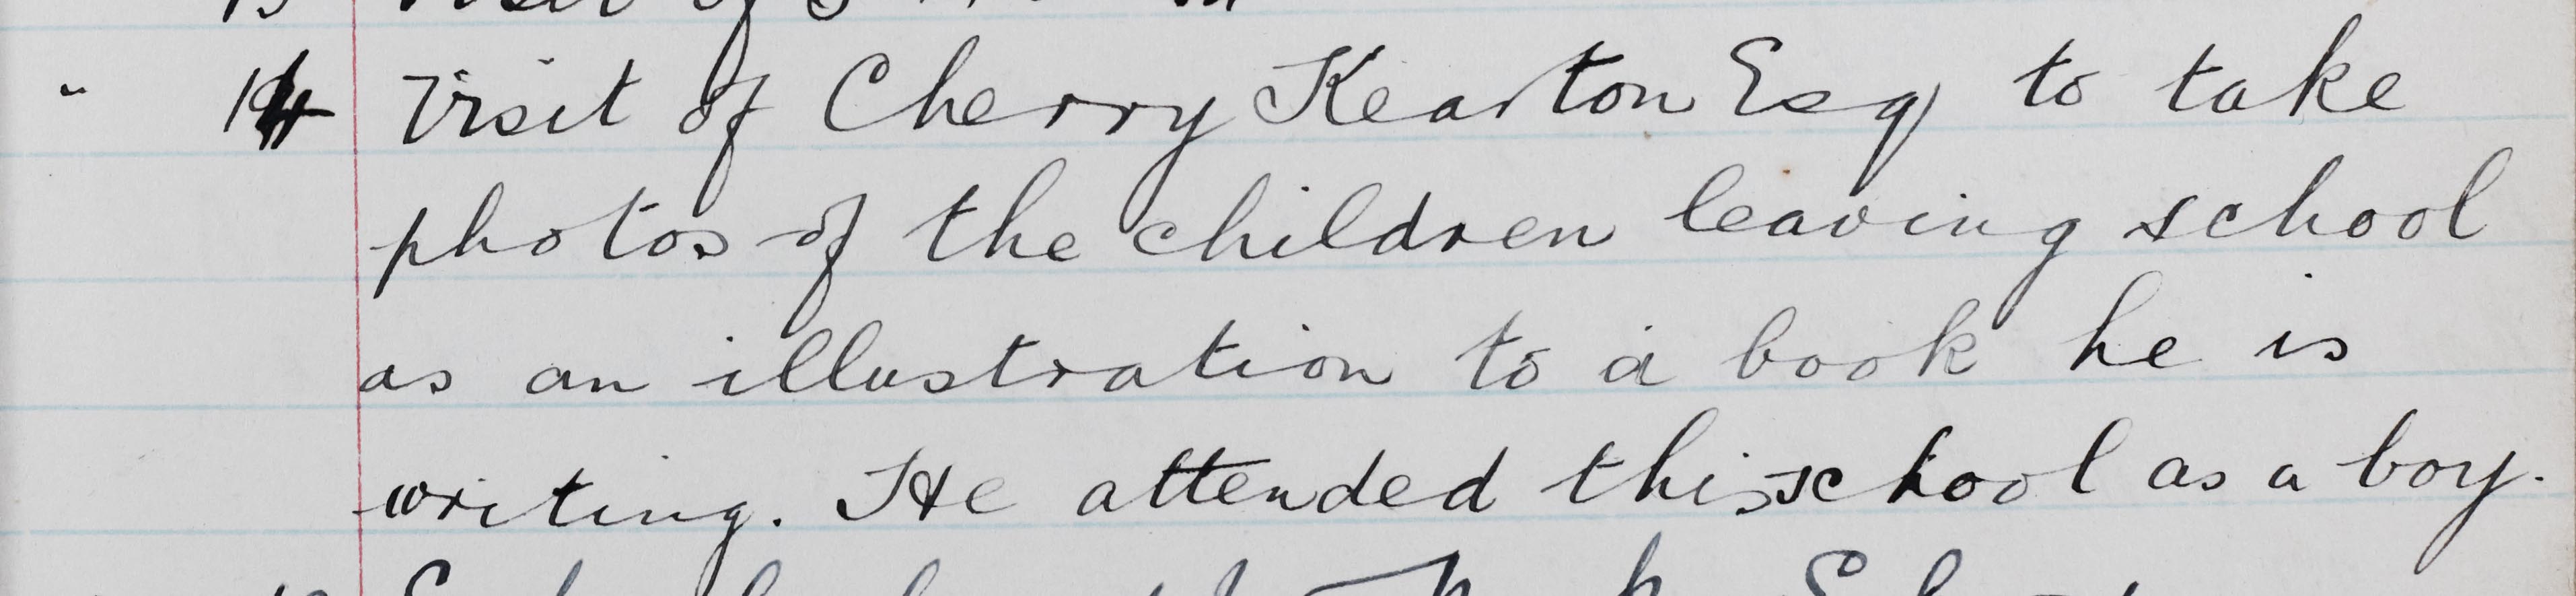 " 14 Visit of Cherry Kearton Esq to take
photos of the children leaving school
as an illustration to a book he is
writing. He attended this school as a boy.